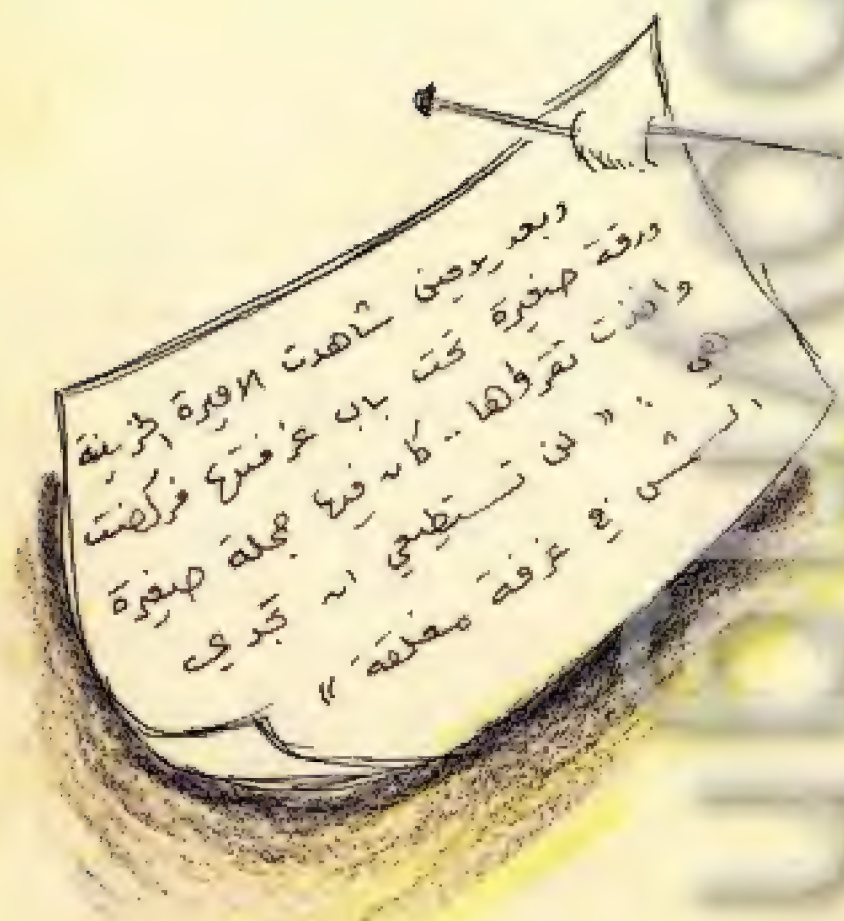 وبعد يومين شاهدت الاميرة الحزينة
ورقة صغيرة تحت باب غرفتها فركضت
واخذت تقرؤها .. كان فيها جملة صغيرة
هي : « لن تستطيعي ان تجدي
الشمس في غرفة مغلقة »